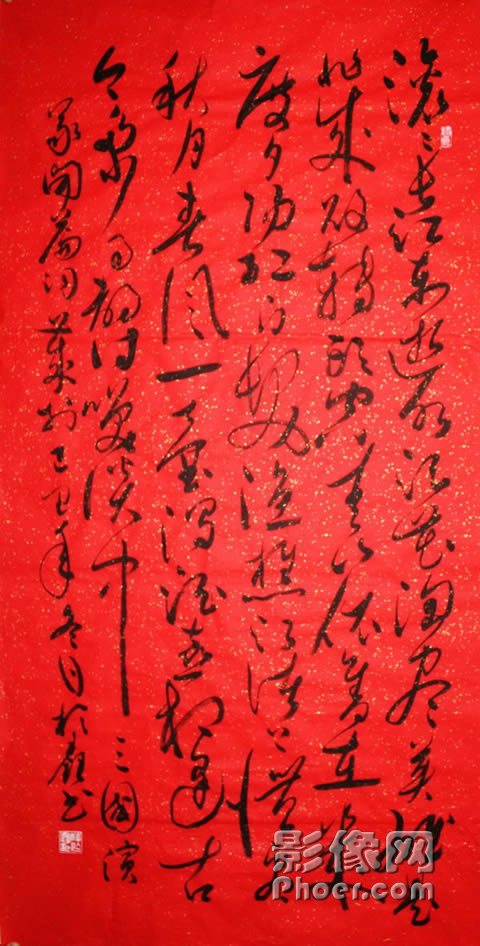 滚滚长江东逝水浪花淘尽英雄是
非成败转头空青山依旧在几
度夕阳红白发渔樵江渚上惯看
秋月春风一壶浊酒喜相逢古
今多少事都付笑谈中 三国演
义开篇词 己丑年冬日 书
影像网
Phoer.com